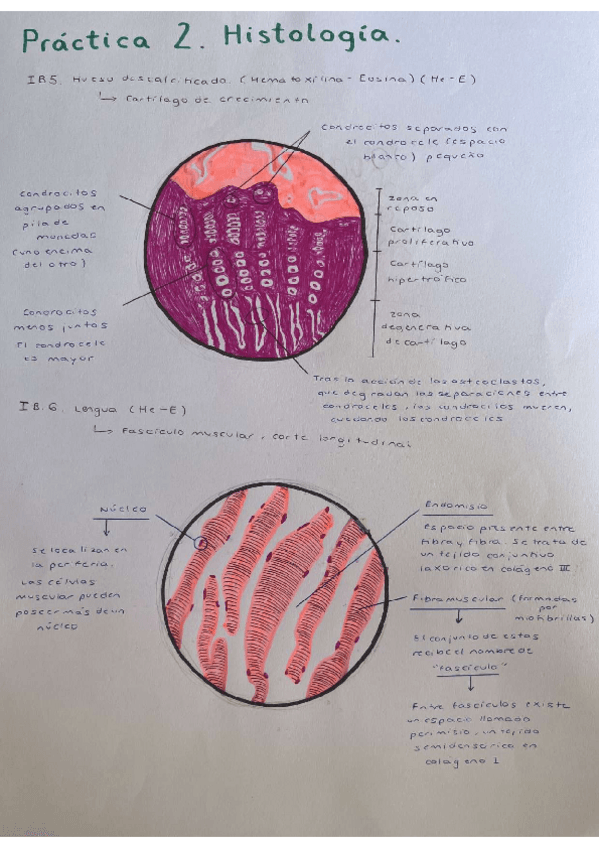 Práctica 2. Histología.
IB5. Hueso descalcificado. (Hematoxilina-Eosina) (He-E)
↳ Cartílago de crecimiento
Condrocitos separados con
el condrocele (espacio
blanco) pequeño
Condrocitos
agrupados en
pila de
monedas
(uno encima
del otro)
zona en
reposo
Cartílago
proliferativo
Cartílago
hipertrófico
zona
degenerativa
de cartílago
Condrocitos
menos juntos
El condrocele
es mayor
Tras la acción de los osteoclastos,
que degradan las separaciones entre
condroceles, los condrocitos mueren,
los condroceles
IB.6. Lengua (He-E)
↳ Fascículo muscular, corte longitudinal
Núcleo
Se localizan en
la periferia.
Las células
muscular pueden
poseer más de un
núcleo
Endomisio
espacio presente entre
fibra y fibra. Se trata de
un tejido conjuntivo
laxo rico en colágeno III
Fibra muscular (formadas
por
miofibrillas)
El conjunto de estas
recibe el nombre de
"fascículo"
Entre fascículos existe
un espacio llamado
perimisio, un tejido
semidenso rico en
colágeno I